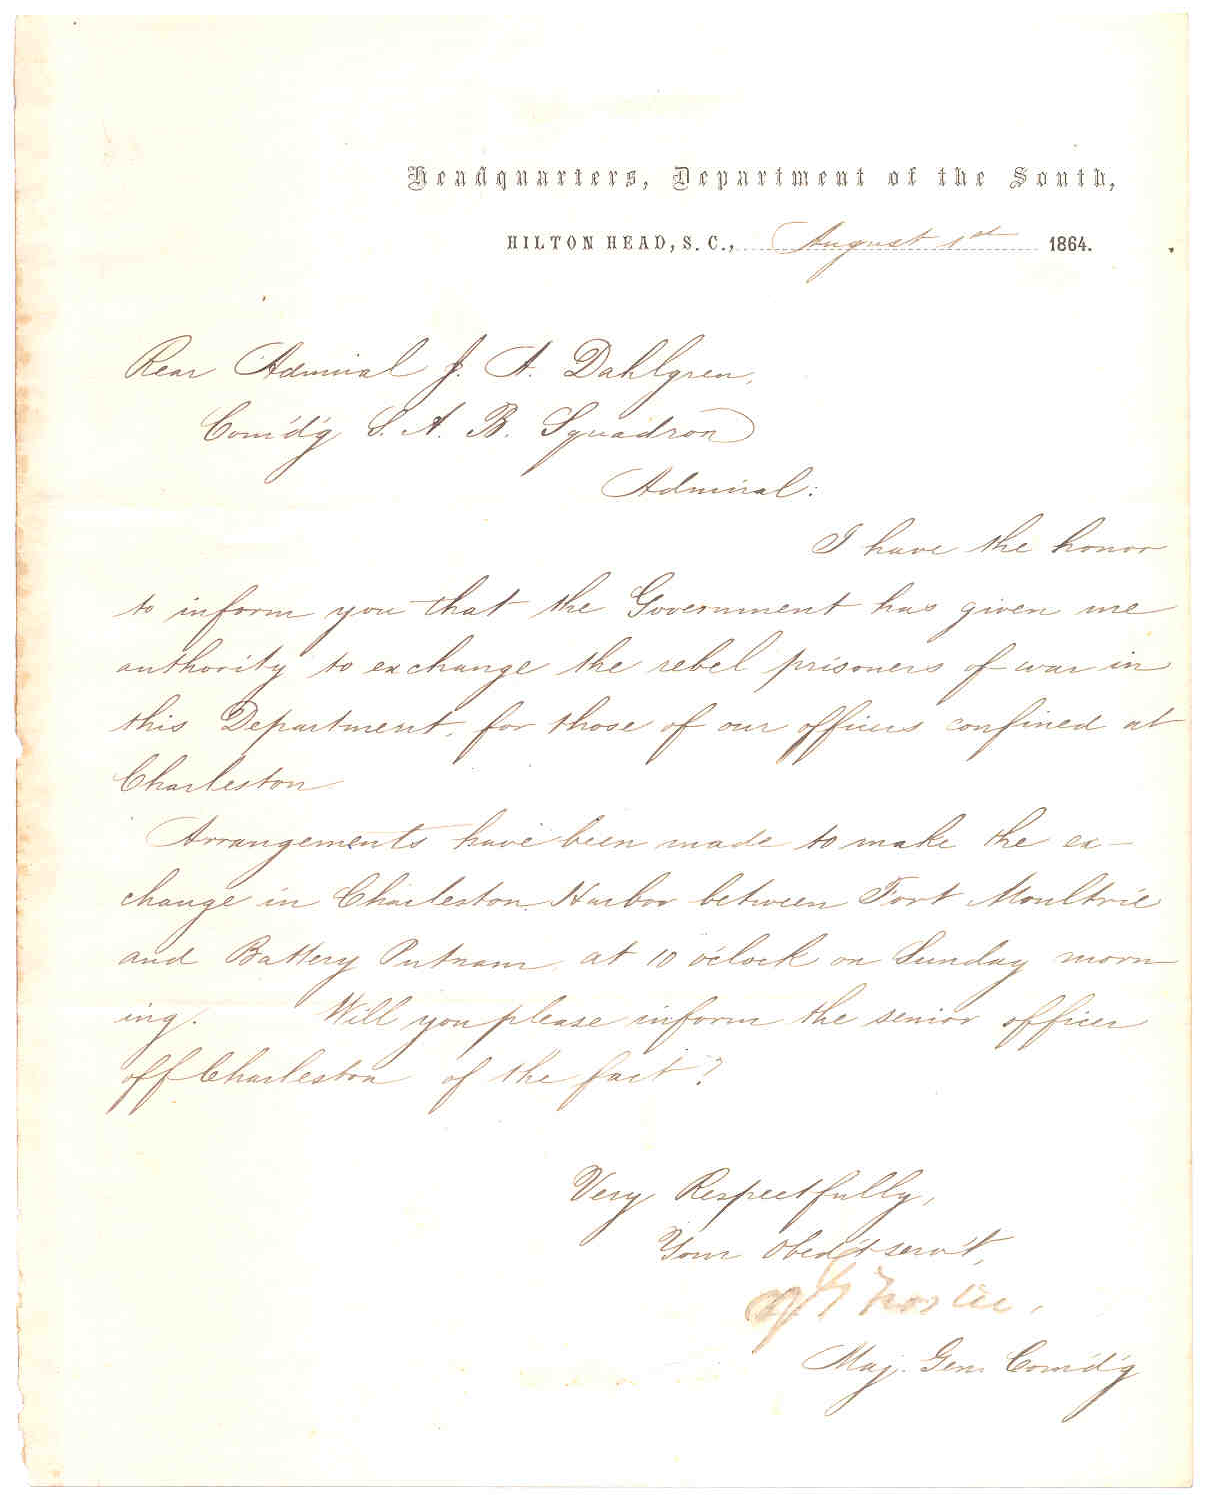 Headquarters, Department of the South,
HILTON HEAD, S. C., August 1st 1864.
Rear Admiral J. A. Dahlgren,
Com'd'g S. A. B. Squadron
Admiral:
I have the honor
to inform you that the Government has given me
authority to exchange the rebel prisoners of war in
this Department, for those of our officers confined at
Charleston
Arrangements have been made to make the ex-
change in Charleston Harbor between Fort Moultrie
and Battery Putnam at 10 o'clock on Sunday morn
ing. Will you please inform the senior officer
off Charleston of the fact?
Very Respectfully,
Your obed't serv't,
J G Foster,
Maj. Gen. Com'd'g